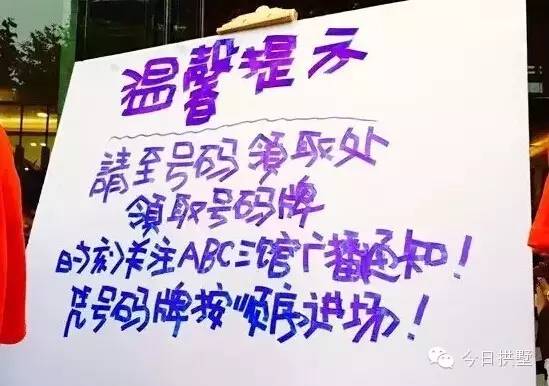 温馨提示
請至号码领取处
领取号码牌
时刻关注ABC三馆广播通知！
凭号码牌按顺序进场！
今日拱墅